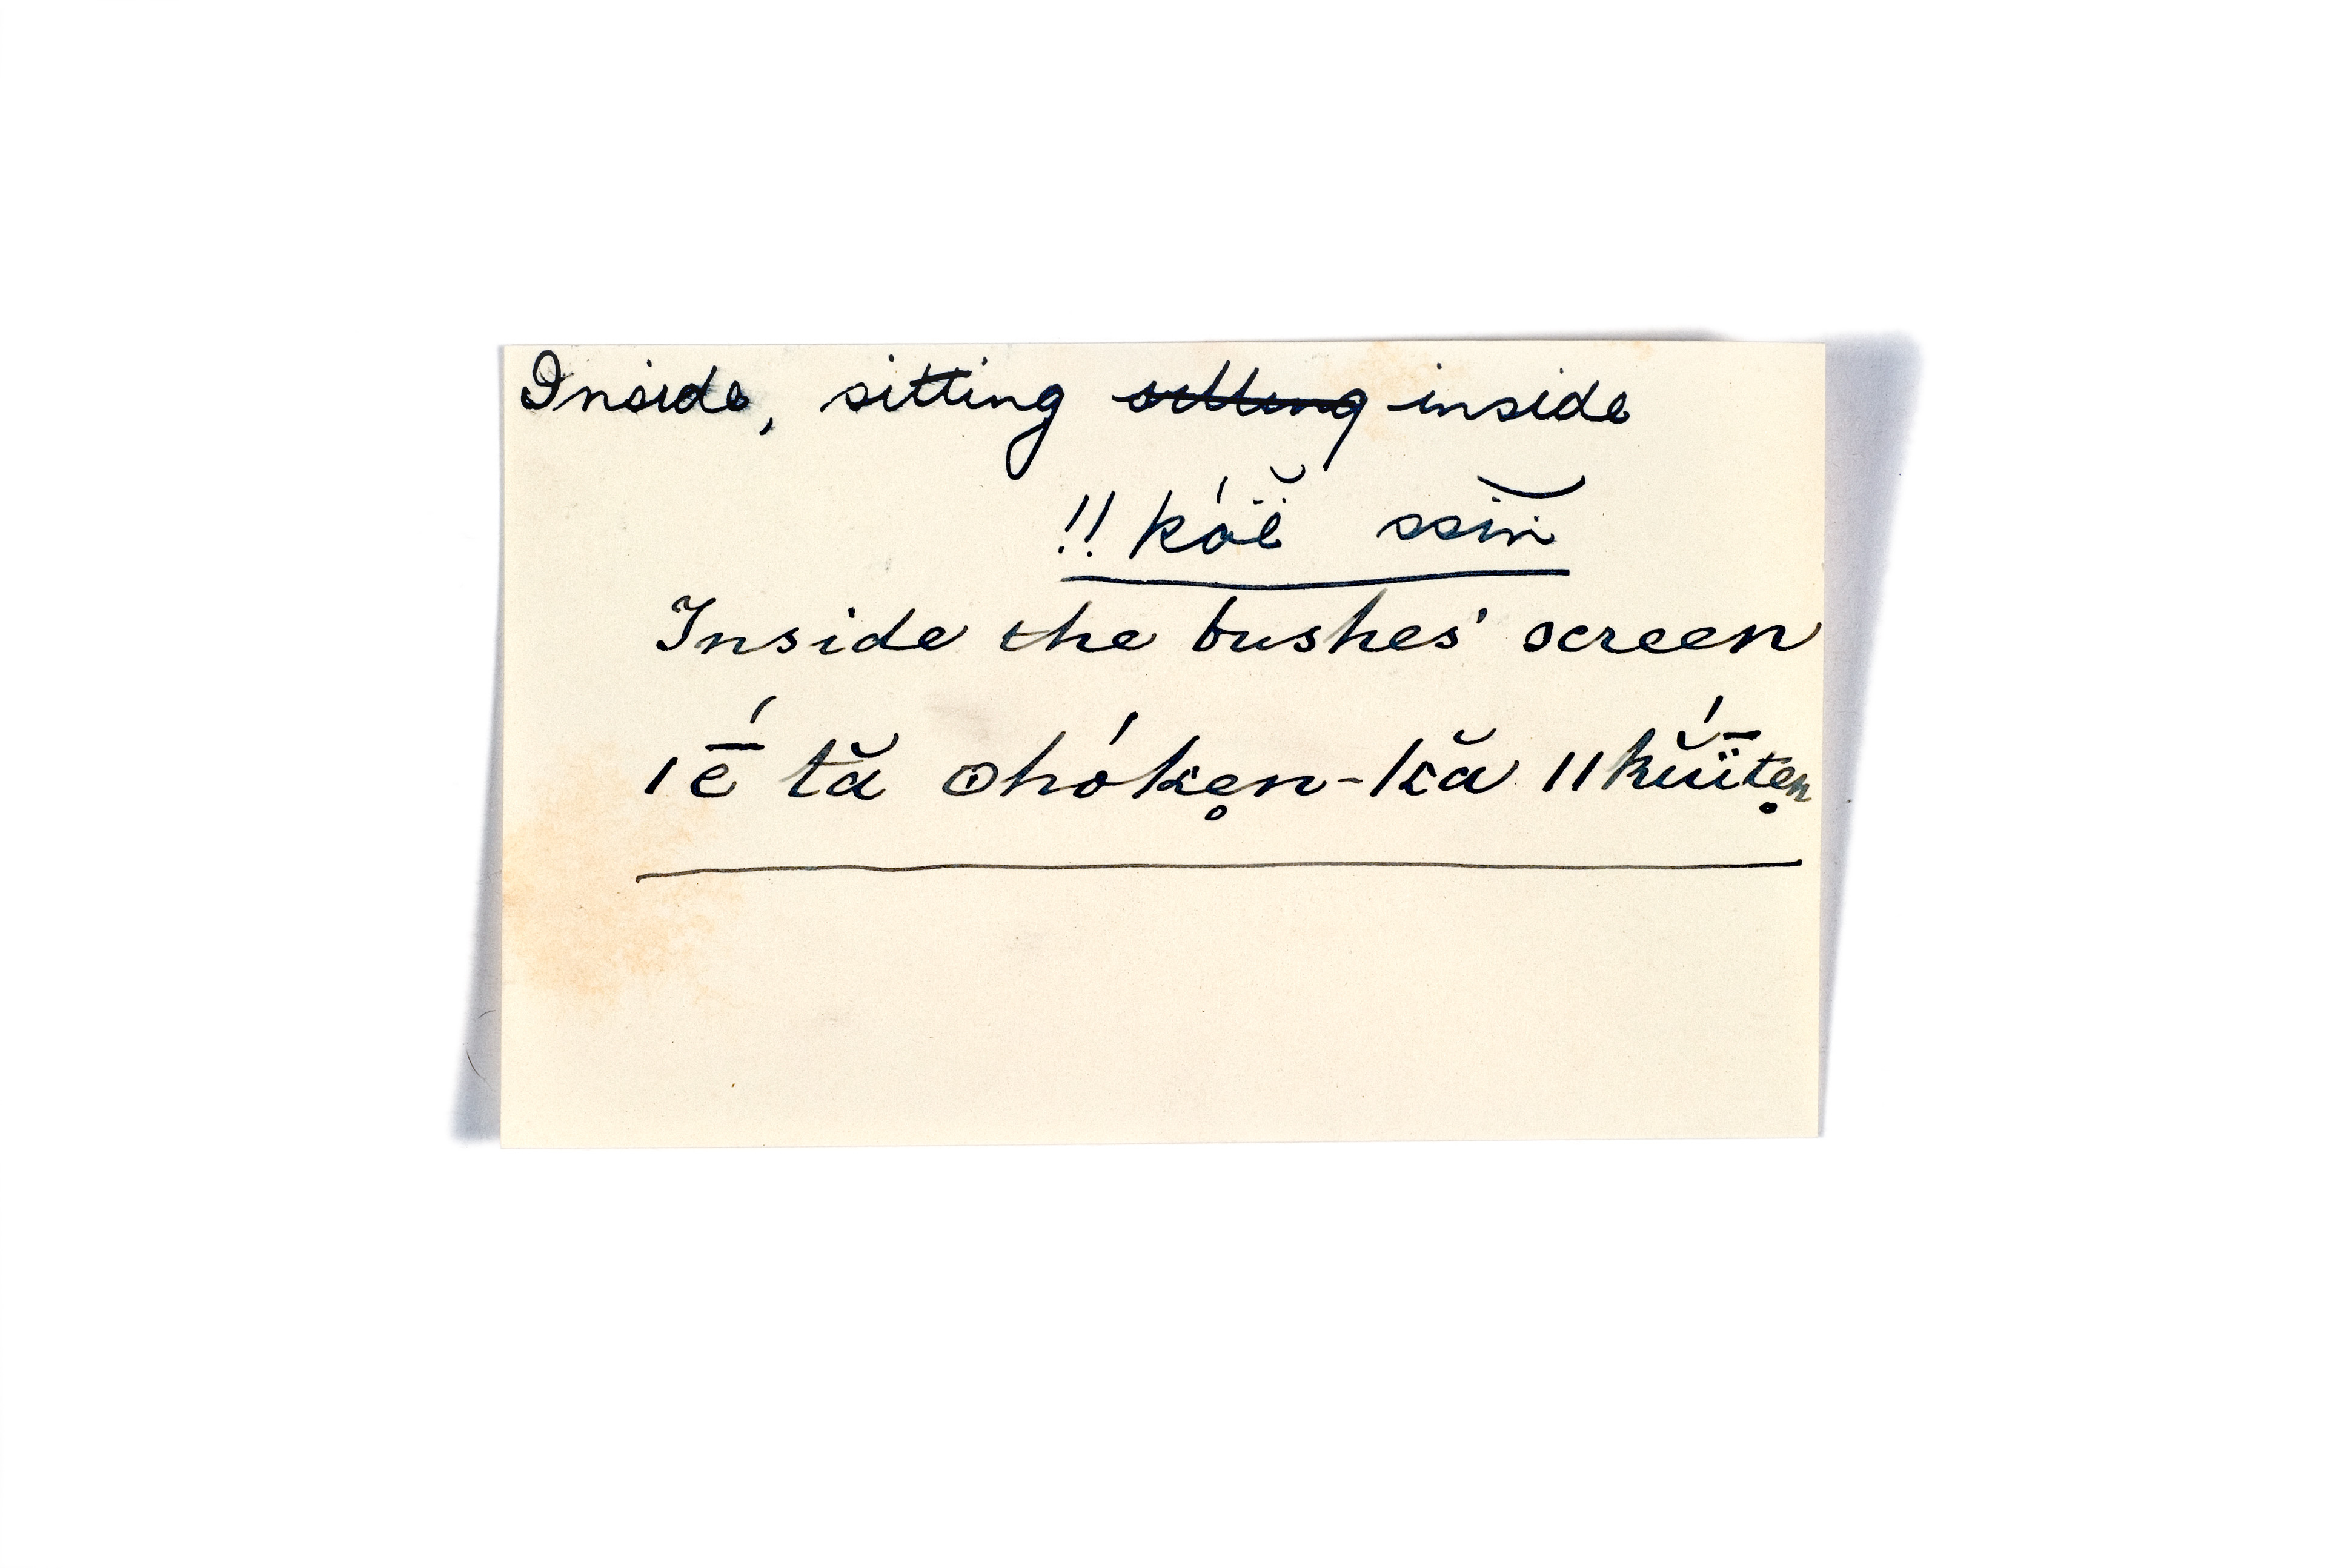 Inside, sitting sitting inside
!! kóë̆ ssĭñ
Inside the bushes' screen
ǀ ḗ tă ʘhókẹn-kă ǁkŭ́ṻtẹn